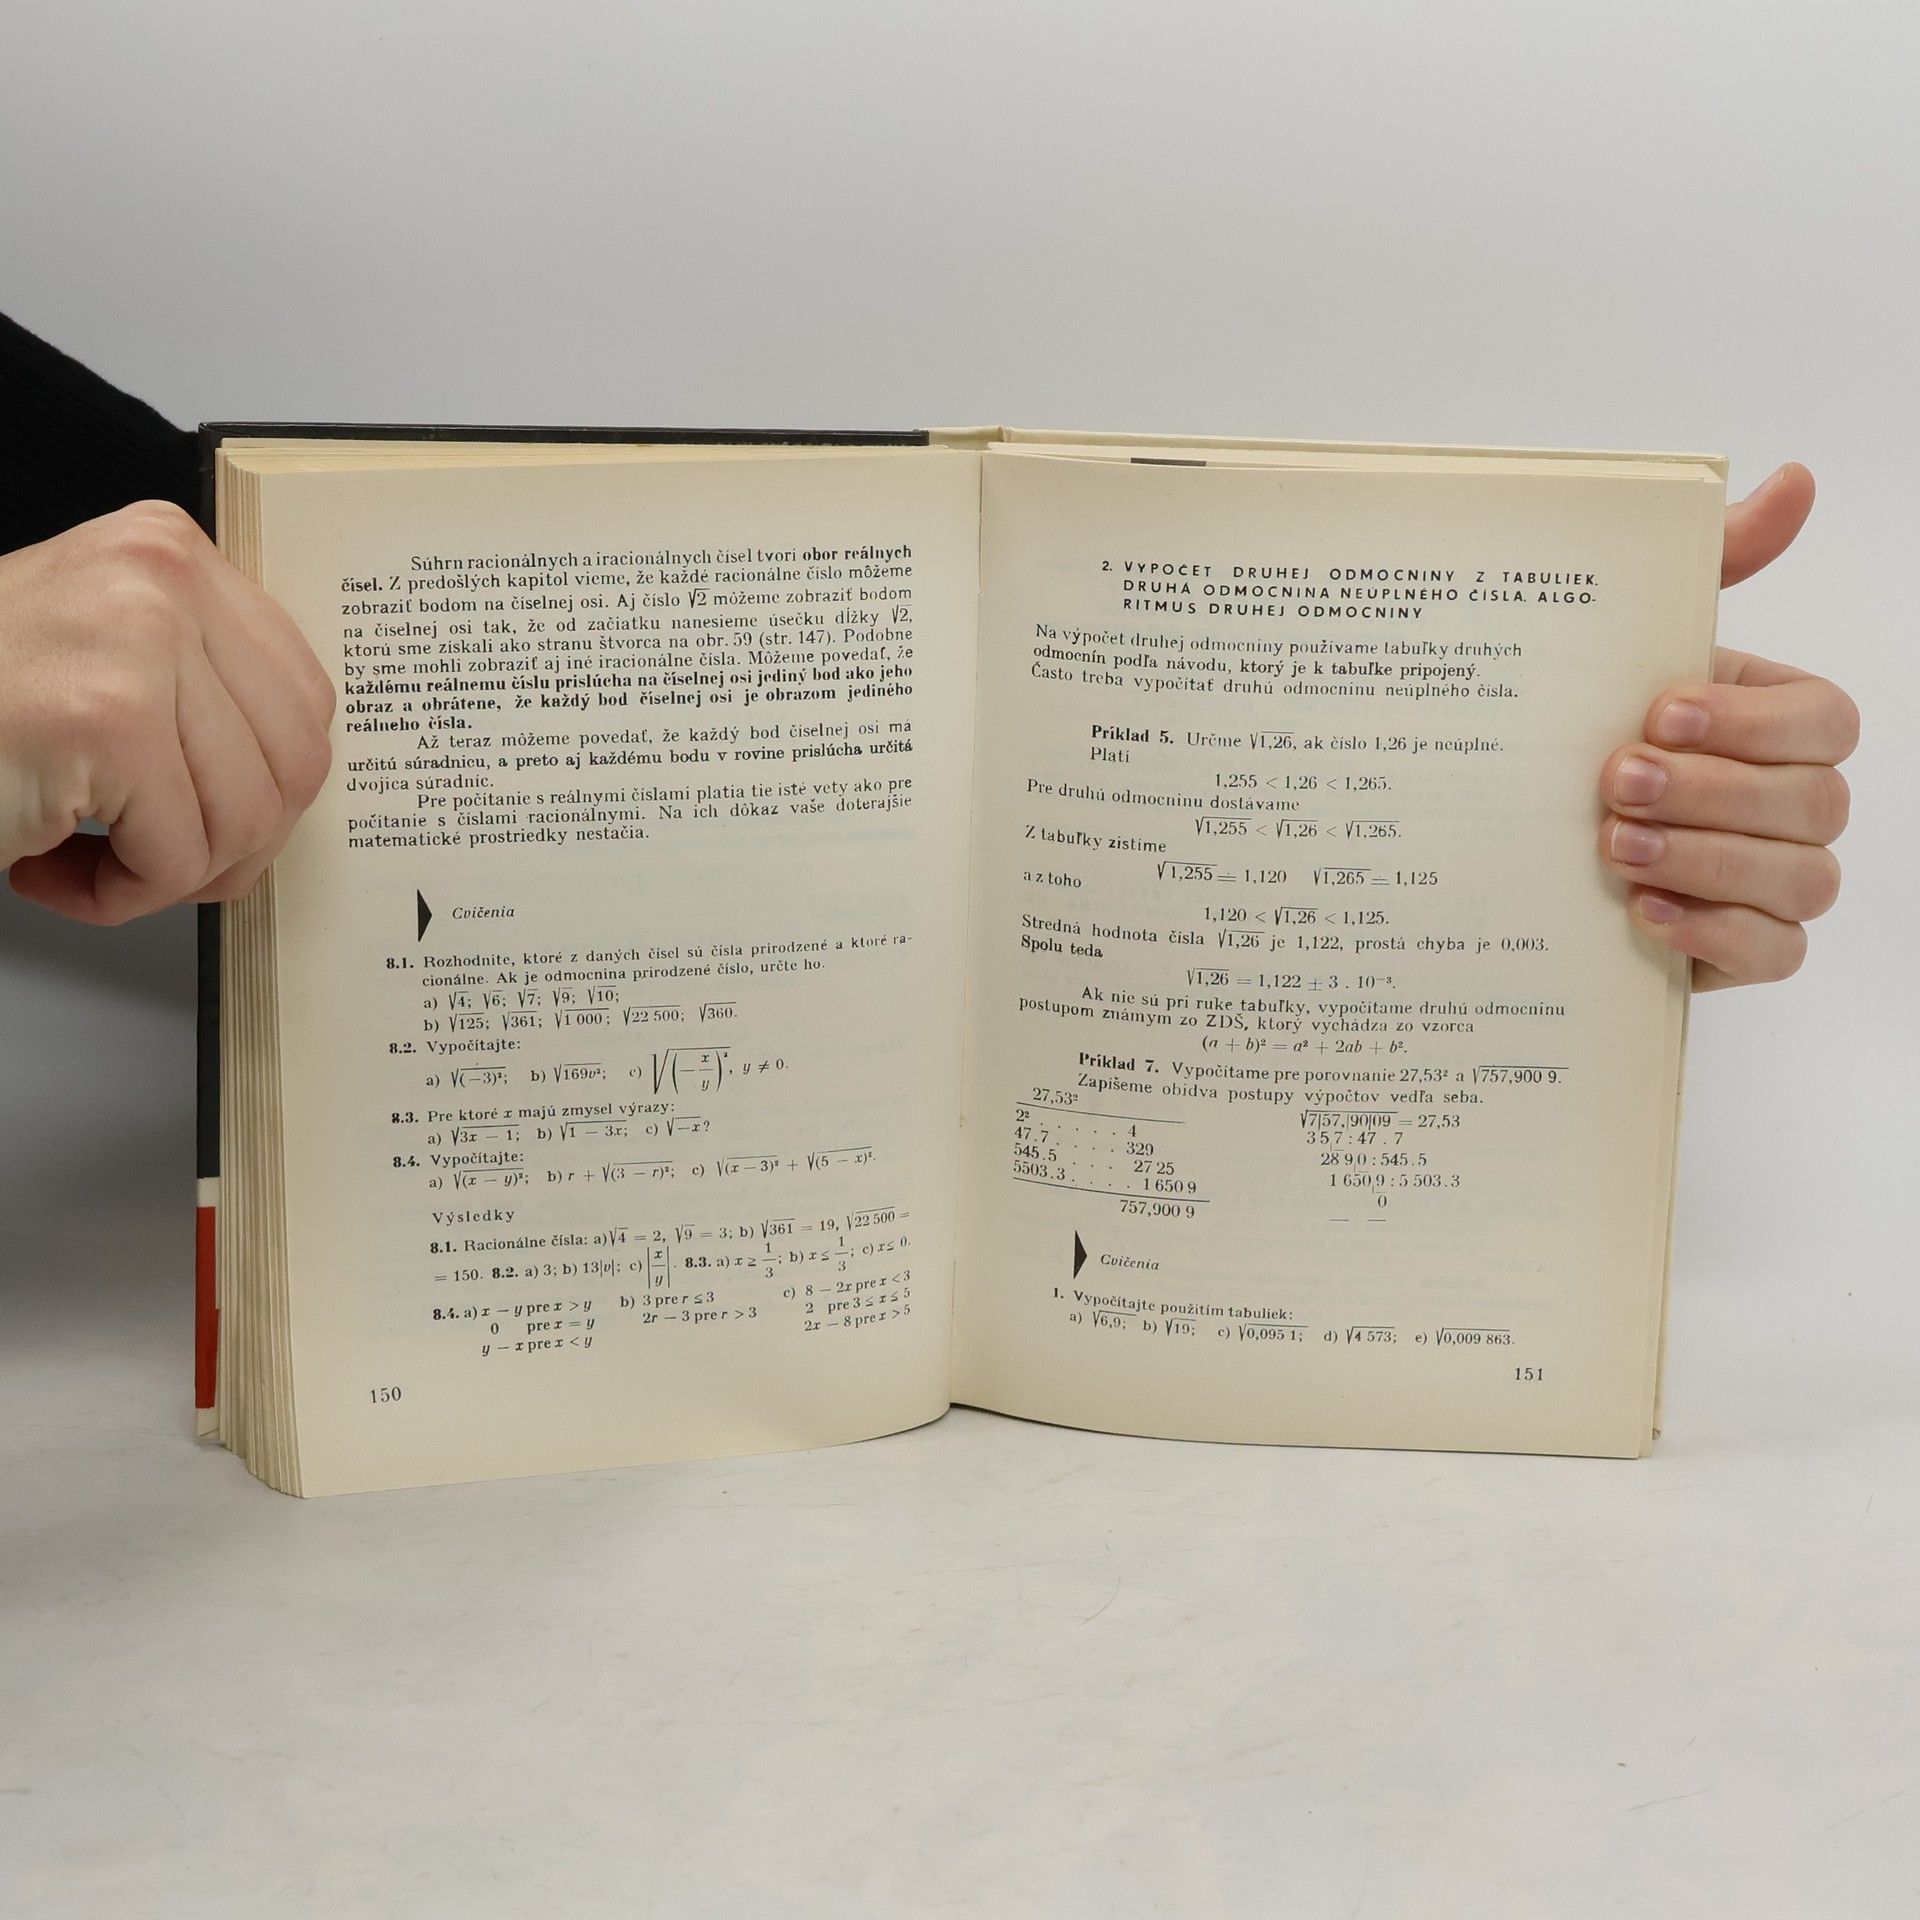 Súhrn racionálnych a iracionálnych čísel tvorí obor reálnych
čísel. Z predošlých kapitol vieme, že každé racionálne číslo môžeme
zobraziť bodom na číselnej osi. Aj číslo √2 môžeme zobraziť bodom
na číselnej osi tak, že od začiatku nanesieme úsečku dĺžky √2,
ktorú sme získali ako stranu štvorca na obr. 59 (str. 147). Podobne
by sme mohli zobraziť aj iné iracionálne čísla. Môžeme povedať, že
každému reálnemu číslu prislúcha na číselnej osi jediný bod ako jeho
obraz a obrátene, že každý bod číselnej osi je obrazom jediného
reálneho čísla.
Až teraz môžeme povedať, že každý bod číselnej osi má
určitú súradnicu, a preto aj každému bodu v rovine prislúcha určitá
dvojica súradníc.
Pre počítanie s reálnymi číslami platia tie isté vety ako pre
počítanie s číslami racionálnymi. Na ich dôkaz vaše doterajšie
matematické prostriedky nestačia.
Cvičenia
8.1. Rozhodnite, ktoré z daných čísel sú čísla prirodzené a ktoré ra-
cionálne. Ak je odmocnina prirodzené číslo, určte ho.
a) √4; √6; √7; √9; √10;
b) √125; √361; √1 000; √22 500; √360.
8.2. Vypočítajte:
a) √(−3)²; b) √169v²; c) √(−x/y)², y ≠ 0.
8.3. Pre ktoré x majú zmysel výrazy:
a) √3x − 1; b) √1 − 3x; c) √−x?
8.4. Vypočítajte:
a) √(x − y)²; b) r + √(3 − r)²; c) √(x − 3)² + √(5 − x)².
Výsledky
8.1. Racionálne čísla: a) √4 = 2, √9 = 3; b) √361 = 19, √22 500 =
= 150. 8.2. a) 3; b) 13|v|; c) |x/y|. 8.3. a) x ≥ 1/3; b) x ≤ 1/3; c) x ≤ 0.
8.4. a) x − y pre x > y b) 3 pre r ≤ 3 c) 8 − 2x pre x < 3
0 pre x = y 2r − 3 pre r > 3 2 pre 3 ≤ x ≤ 5
y − x pre x < y 2x − 8 pre x > 5
150
2. VÝPOČET DRUHEJ ODMOCNINY Z TABULIEK.
DRUHÁ ODMOCNINA NEÚPLNÉHO ČÍSLA. ALGO-
RITMUS DRUHEJ ODMOCNINY
Na výpočet druhej odmocniny používame tabuľky druhých
odmocnín podľa návodu, ktorý je k tabuľke pripojený.
Často treba vypočítať druhú odmocninu neúplného čísla.
Príklad 5. Určme √1,26, ak číslo 1,26 je neúplné.
Platí
1,255 < 1,26 < 1,265.
Pre druhú odmocninu dostávame
√1,255 < √1,26 < √1,265.
Z tabuľky zistíme
√1,255 ≐ 1,120 √1,265 ≐ 1,125
a z toho
1,120 < √1,26 < 1,125.
Stredná hodnota čísla √1,26 je 1,122, prostá chyba je 0,003.
Spolu teda
√1,26 = 1,122 ± 3 . 10⁻³.
Ak nie sú pri ruke tabuľky, vypočítame druhú odmocninu
postupom známym zo ZDŠ, ktorý vychádza zo vzorca
(a + b)² = a² + 2ab + b².
Príklad 7. Vypočítame pre porovnanie 27,53² a √757,900 9.
Zapíšeme obidva postupy výpočtov vedľa seba.
27,53² √7|57,|90|09 = 27,53
2² . . . . . 4 357 : 47 . 7
47.7 . . . . 329 2890 : 545.5
545.5 . . . 27 25 1 6509 : 5 503.3
5503.3 . . . . 1 650 9 0
757,900 9
Cvičenia
1. Vypočítajte použitím tabuliek:
a) √6,9; b) √19; c) √0,095 1; d) √4 573; e) √0,009 863.
151